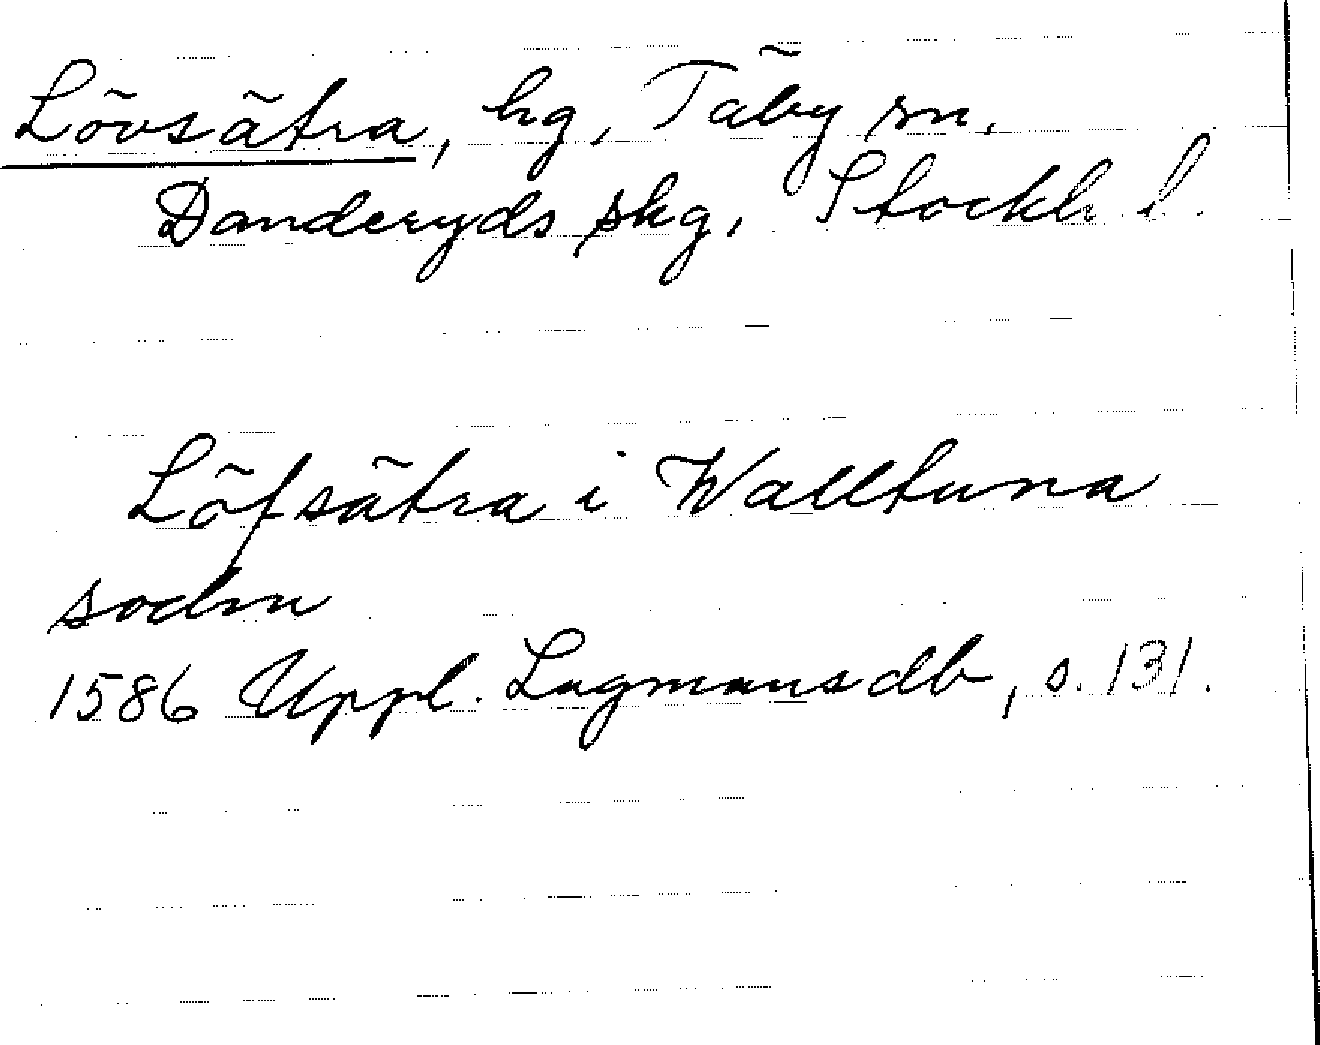 Lövsätra, hg, Täby sn.
Danderyds skg, Stockh. l.
Löfsätra i Walltuna
sodnn
1586 Uppl. Lagmansdb, s. 131.